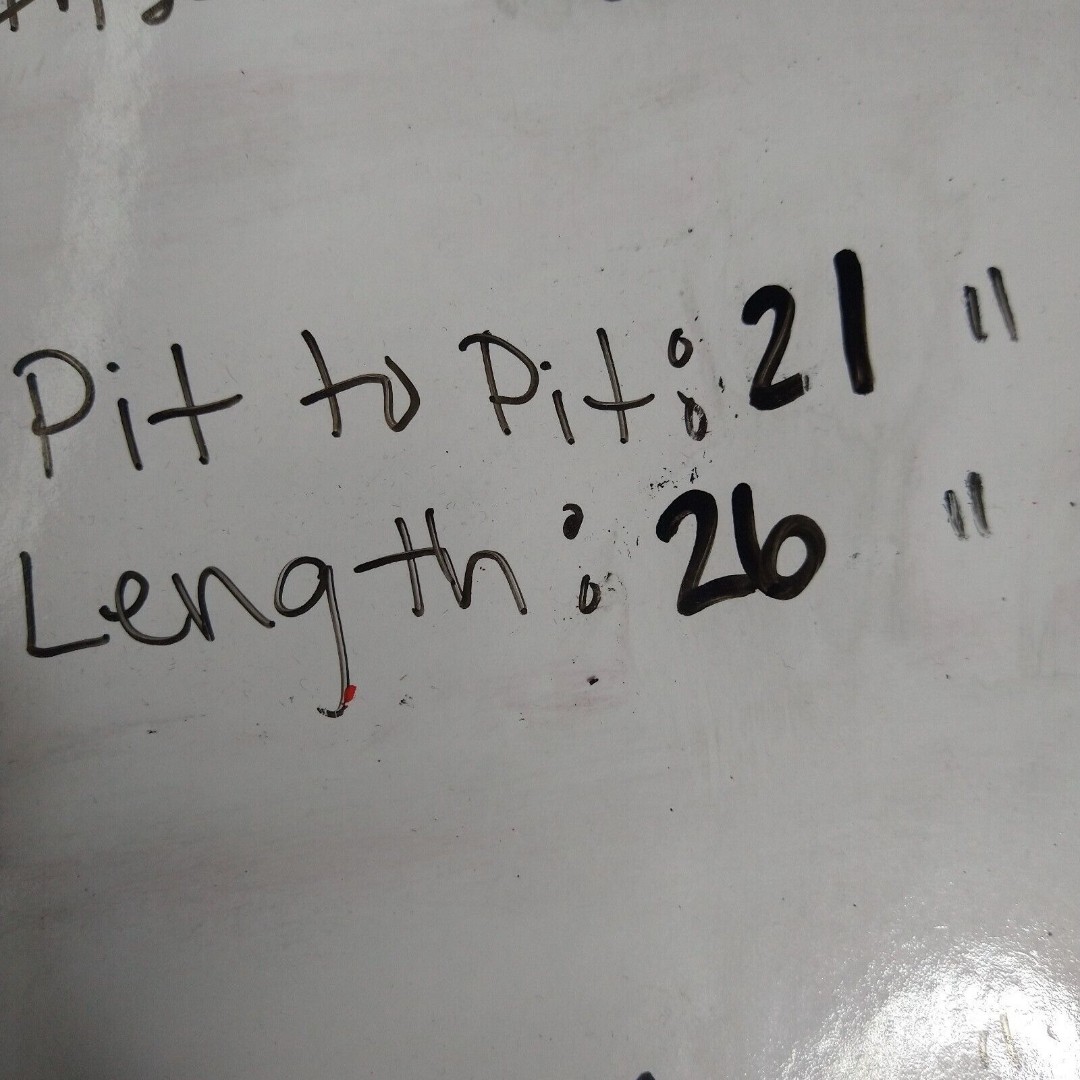 Pit to Pit: 21 "
Length: 26 "